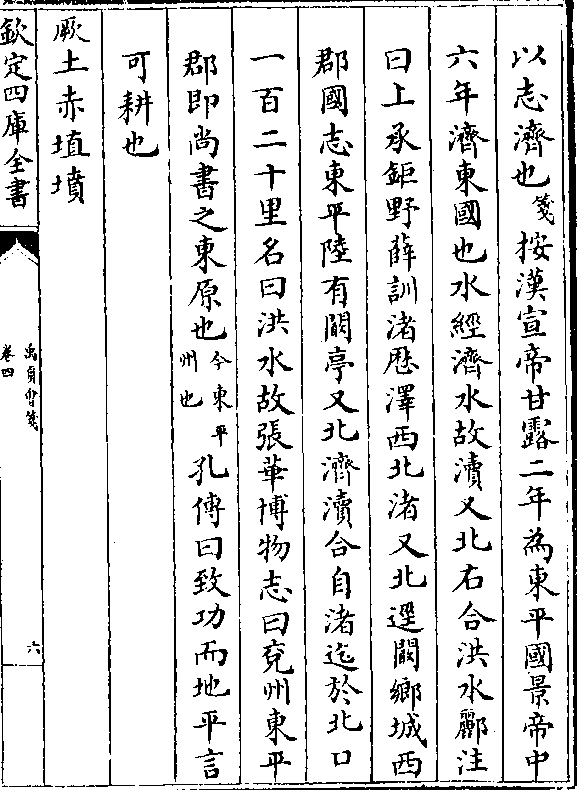 以志濟也箋按漢宣帝甘露二年為東平國景帝中
六年濟東國也水經濟水故瀆又北右合洪水酈注
曰上承鉅野薛訓渚歴澤西北渚又北逕闞鄉城西
郡國志東平陸有闞亭又北濟瀆合自渚迄於北口
一百二十里名曰洪水故張華博物志曰兗州東平
郡即尚書之東原也今東平
州也孔傳曰致功而地平言
可耕也
厥土赤埴墳
欽定四庫全書
禹貢會箋
卷四
六